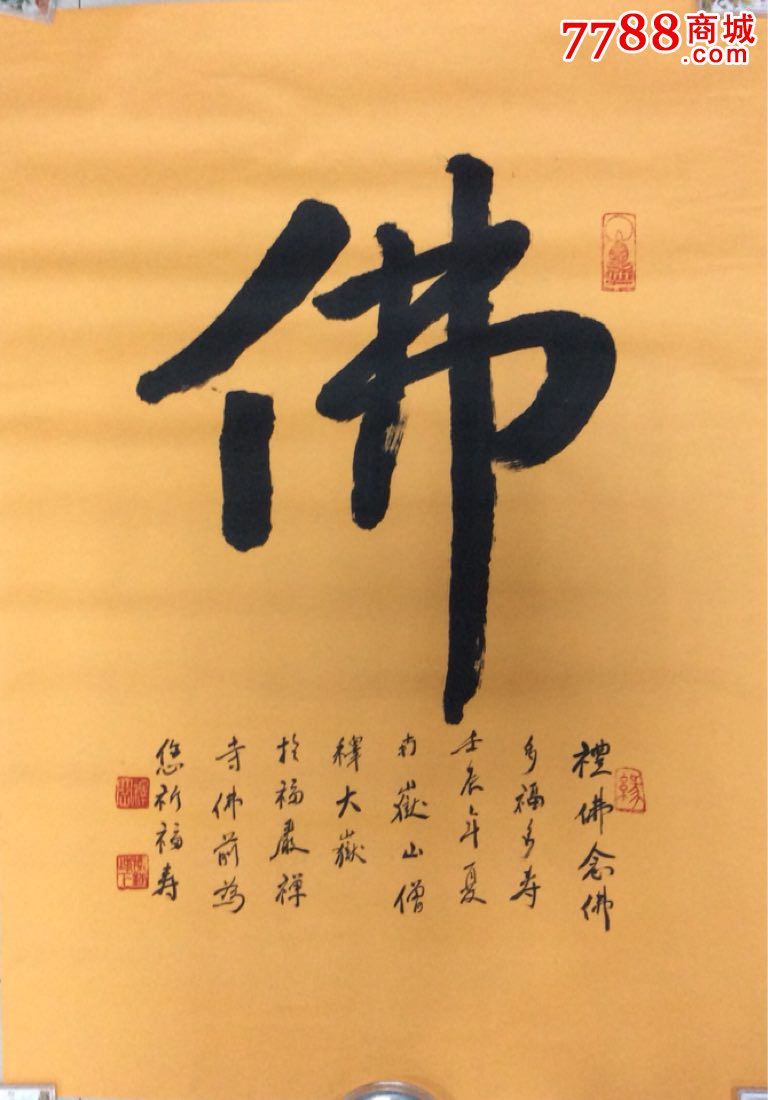 7788商城
.com
佛
禮佛念佛
多福多寿
壬辰年夏
南嶽山僧
釋大嶽
於福嚴禅
寺佛前為
您祈福寿
緣